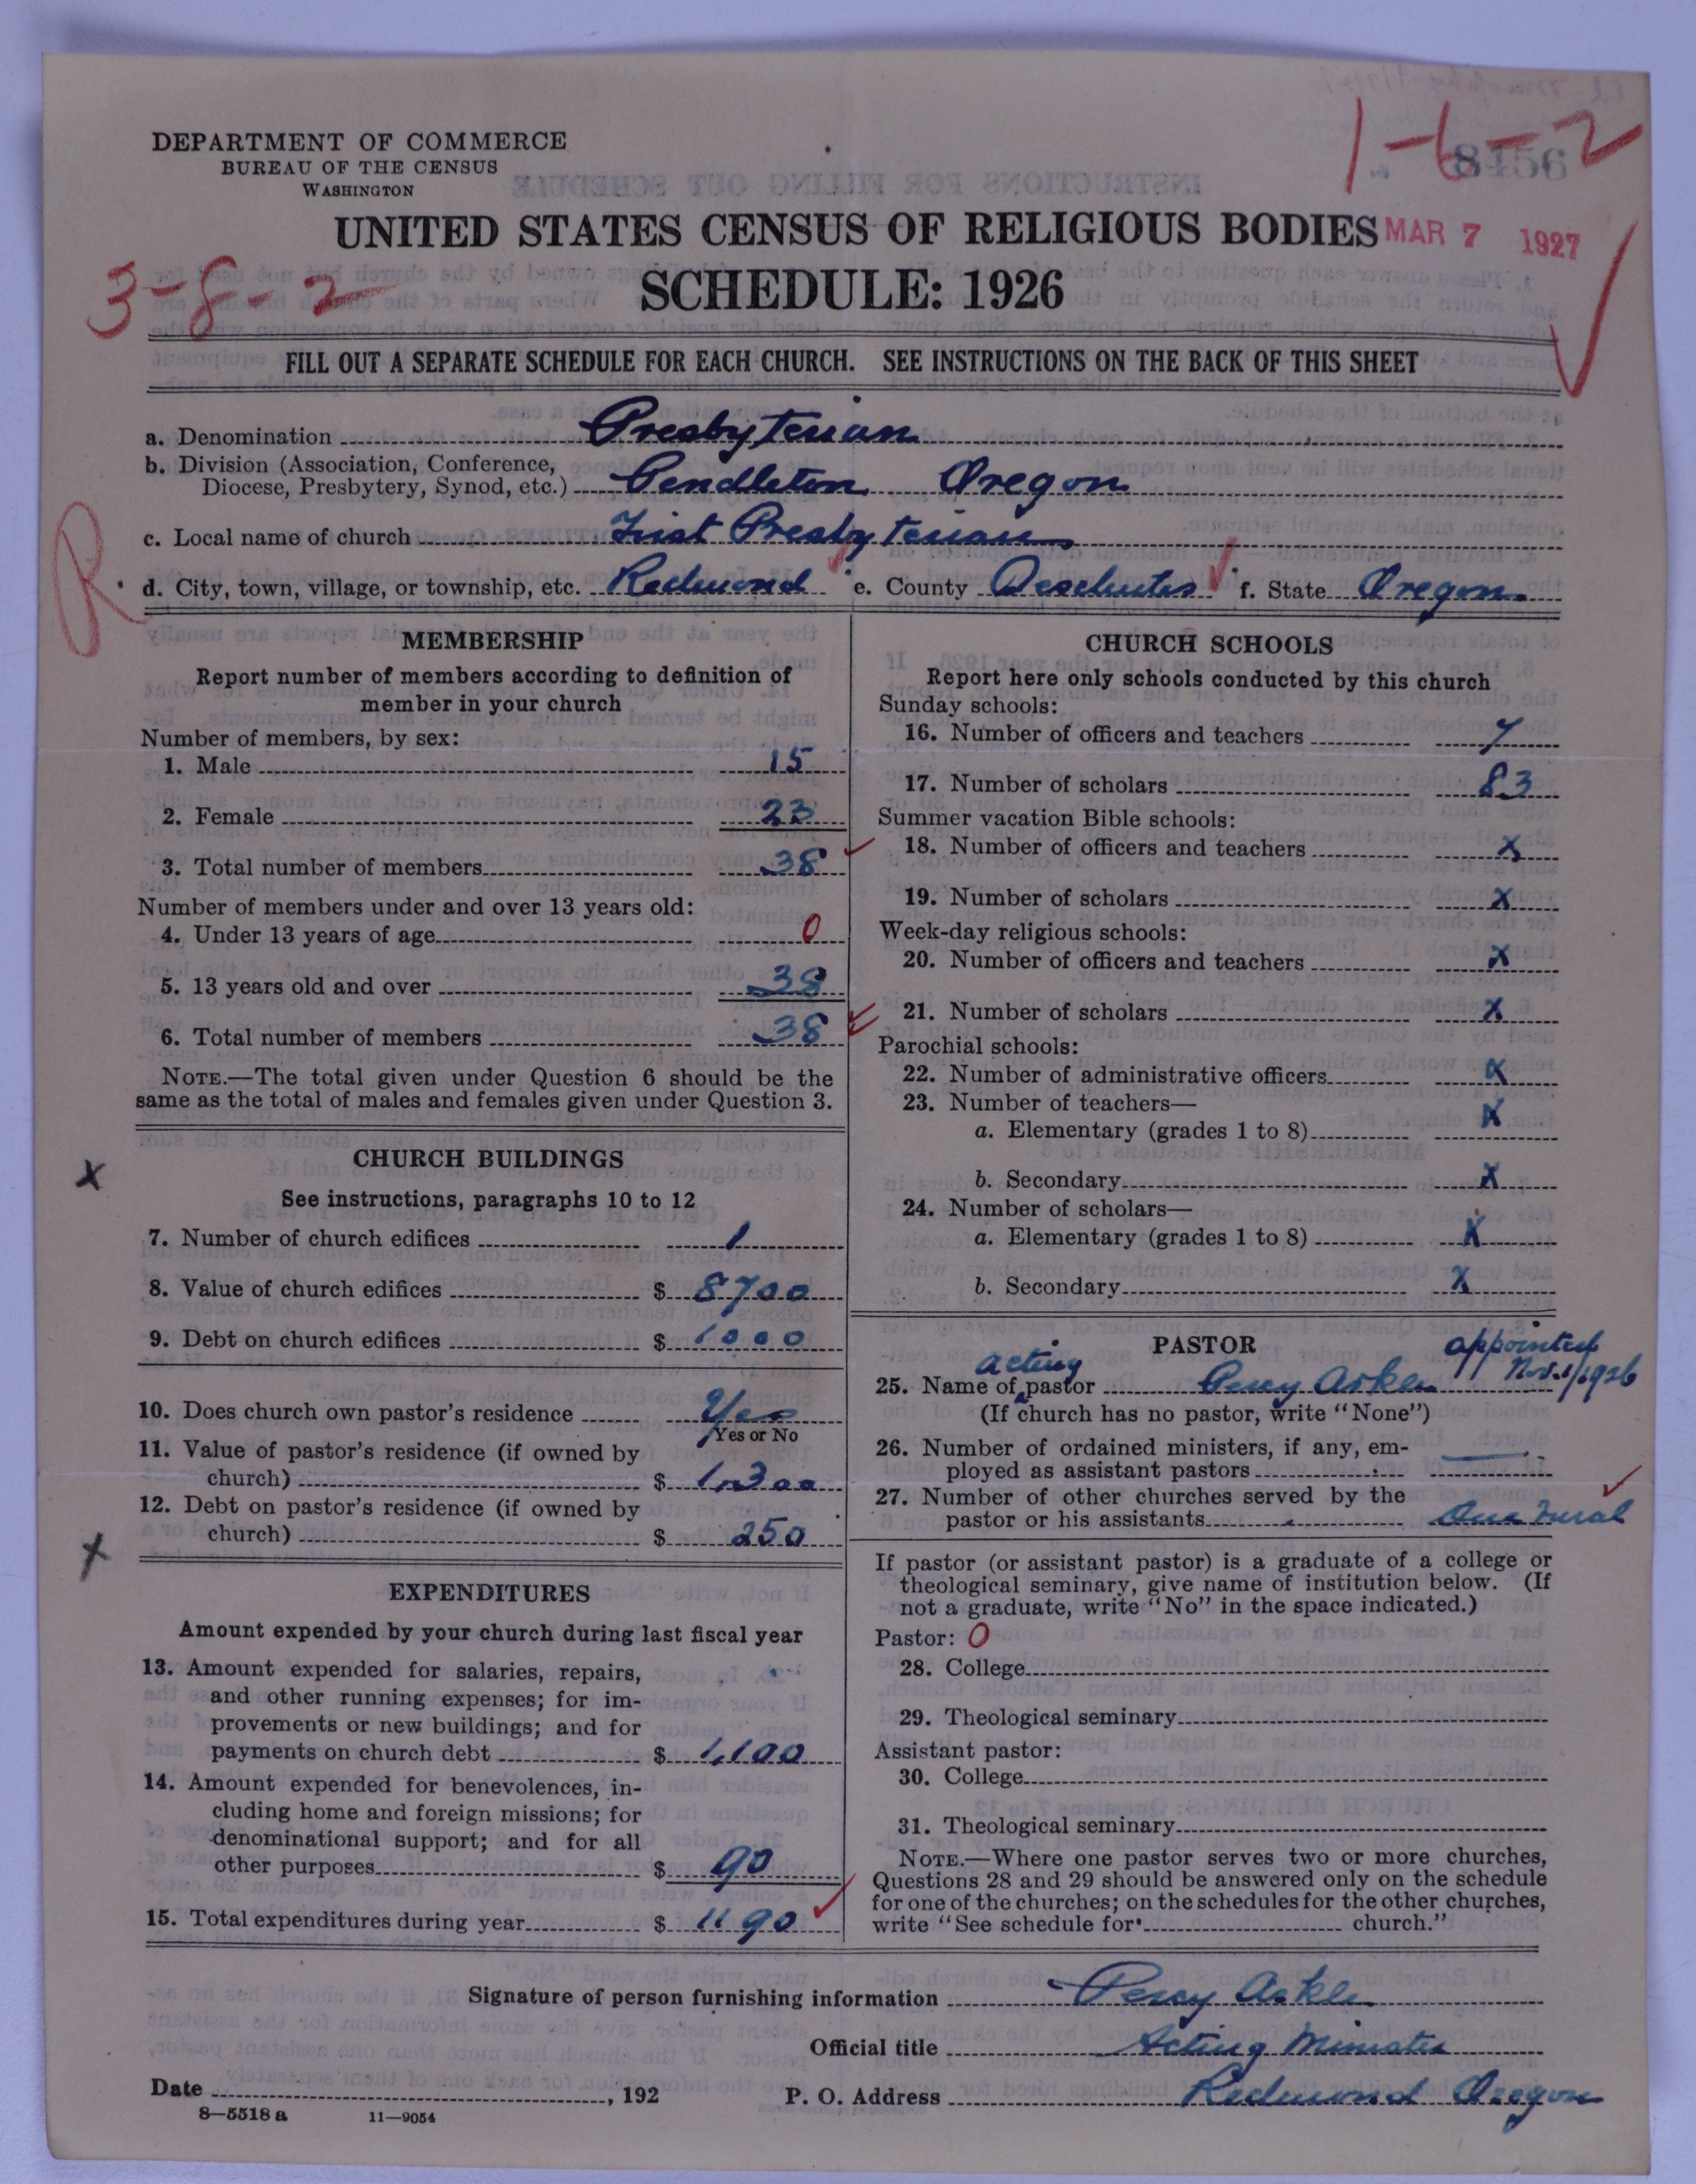 1-6-2
8456
DEPARTMENT OF COMMERCE
BUREAU OF THE CENSUS
WASHINGTON
UNITED STATES CENSUS OF RELIGIOUS BODIES MAR 7 1927
3-8-2 SCHEDULE: 1926
FILL OUT A SEPARATE SCHEDULE FOR EACH CHURCH. SEE INSTRUCTIONS ON THE BACK OF THIS SHEET
a. Denomination Presbyterian
b. Division (Association, Conference,
Diocese, Presbytery, Synod, etc.) Pendleton Oregon
c. Local name of church First Presbyterian
R
d. City, town, village, or township, etc. Redmond e. County Deschutes f. State Oregon.
MEMBERSHIP
Report number of members according to definition of
member in your church
Number of members, by sex:
1. Male 15
2. Female 23
3. Total number of members 38
Number of members under and over 13 years old:
4. Under 13 years of age 0
5. 13 years old and over 38
6. Total number of members 38
NOTE.—The total given under Question 6 should be the
same as the total of males and females given under Question 3.
x
CHURCH BUILDINGS
See instructions, paragraphs 10 to 12
7. Number of church edifices 1
8. Value of church edifices $ 8700
9. Debt on church edifices $ 1000
10. Does church own pastor's residence Yes
Yes or No
11. Value of pastor's residence (if owned by
church) $ 1300
12. Debt on pastor's residence (if owned by
church) $ 250
x
EXPENDITURES
Amount expended by your church during last fiscal year
13. Amount expended for salaries, repairs,
and other running expenses; for im-
provements or new buildings; and for
payments on church debt $ 1,100
14. Amount expended for benevolences, in-
cluding home and foreign missions; for
denominational support; and for all
other purposes $ 90
15. Total expenditures during year $ 1190
CHURCH SCHOOLS
Report here only schools conducted by this church
Sunday schools:
16. Number of officers and teachers 7
17. Number of scholars 83
Summer vacation Bible schools:
18. Number of officers and teachers x
19. Number of scholars x
Week-day religious schools:
20. Number of officers and teachers x
21. Number of scholars x
Parochial schools:
22. Number of administrative officers x
23. Number of teachers—
a. Elementary (grades 1 to 8) x
b. Secondary x
24. Number of scholars—
a. Elementary (grades 1 to 8) x
b. Secondary x
PASTOR appointed
acting Nov. 1/1926
25. Name of pastor Percy Arkle
(If church has no pastor, write "None")
26. Number of ordained ministers, if any, em-
ployed as assistant pastors —
27. Number of other churches served by the
pastor or his assistants One Rural
If pastor (or assistant pastor) is a graduate of a college or
theological seminary, give name of institution below. (If
not a graduate, write "No" in the space indicated.)
Pastor: O
28. College
29. Theological seminary
Assistant pastor:
30. College
31. Theological seminary
NOTE.—Where one pastor serves two or more churches,
Questions 28 and 29 should be answered only on the schedule
for one of the churches; on the schedules for the other churches,
write "See schedule for church."
Signature of person furnishing information Percy Arkle
Official title Acting Minister
Date , 192 P. O. Address Redmond Oregon
8—5518 a 11—9054